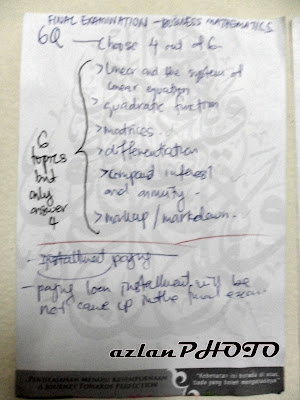 FINAL EXAMINATION - BUSINESS MATHEMATICS
6Q - Choose 4 out of 6.
> Linear and the system of
linear equation
> quadratic function
> matrices.
> differentiation
> compound interest
and annuity.
> markup/markdown.
6
topics
but
only
answer
4
- installment paying
- paying loan installment will be
not came up in the final exam
azlanPHOTO
PENDAKIAN MENUJU KESEMPURNAAN
A JOURNEY TOWARDS PERFECTION